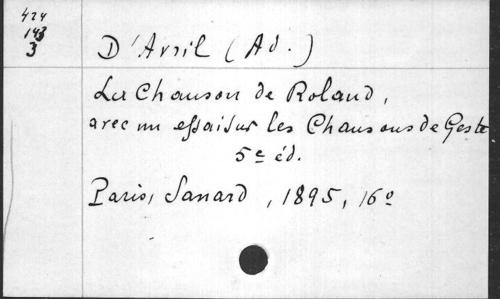 424
143
3
D'Avril (Ad.)
La Chanson de Roland,
avec un essai sur les Chansons de Geste
5e éd.
Paris, Sanard, 1895, 16o